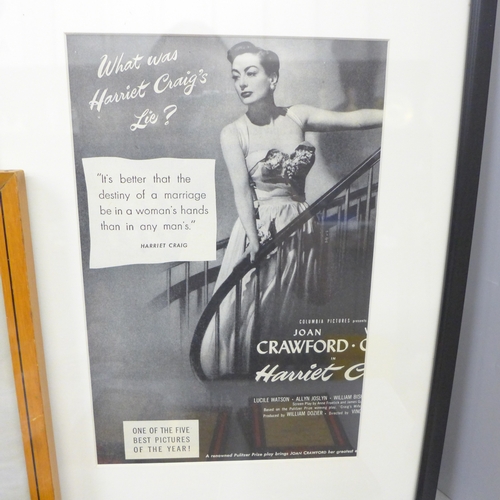 What was
Harriet Craig's
Lie?
"It's better that the
destiny of a marriage
be in a woman's hands
than in any man's."
HARRIET CRAIG
COLUMBIA PICTURES presents
JOAN
CRAWFORD • C
IN
Harriet C
LUCILE WATSON • ALLYN JOSLYN • WILLIAM BIS
Screen Play by Anne Froelick and James Gunn
Based on the Pulitzer Prize winning play, "Craig's Wife
Produced by WILLIAM DOZIER • Directed by VINC
ONE OF THE FIVE
BEST PICTURES
OF THE YEAR!
A renowned Pulitzer Prize play brings JOAN CRAWFORD her greatest